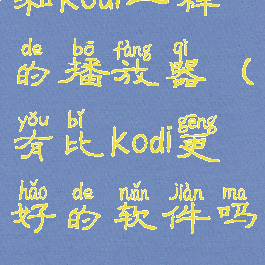 和Kodi一样
de bō fàng qì
的播放器（
yǒu bǐ gēng
有比Kodi更
hǎo de ruǎn jiàn ma
好的软件吗